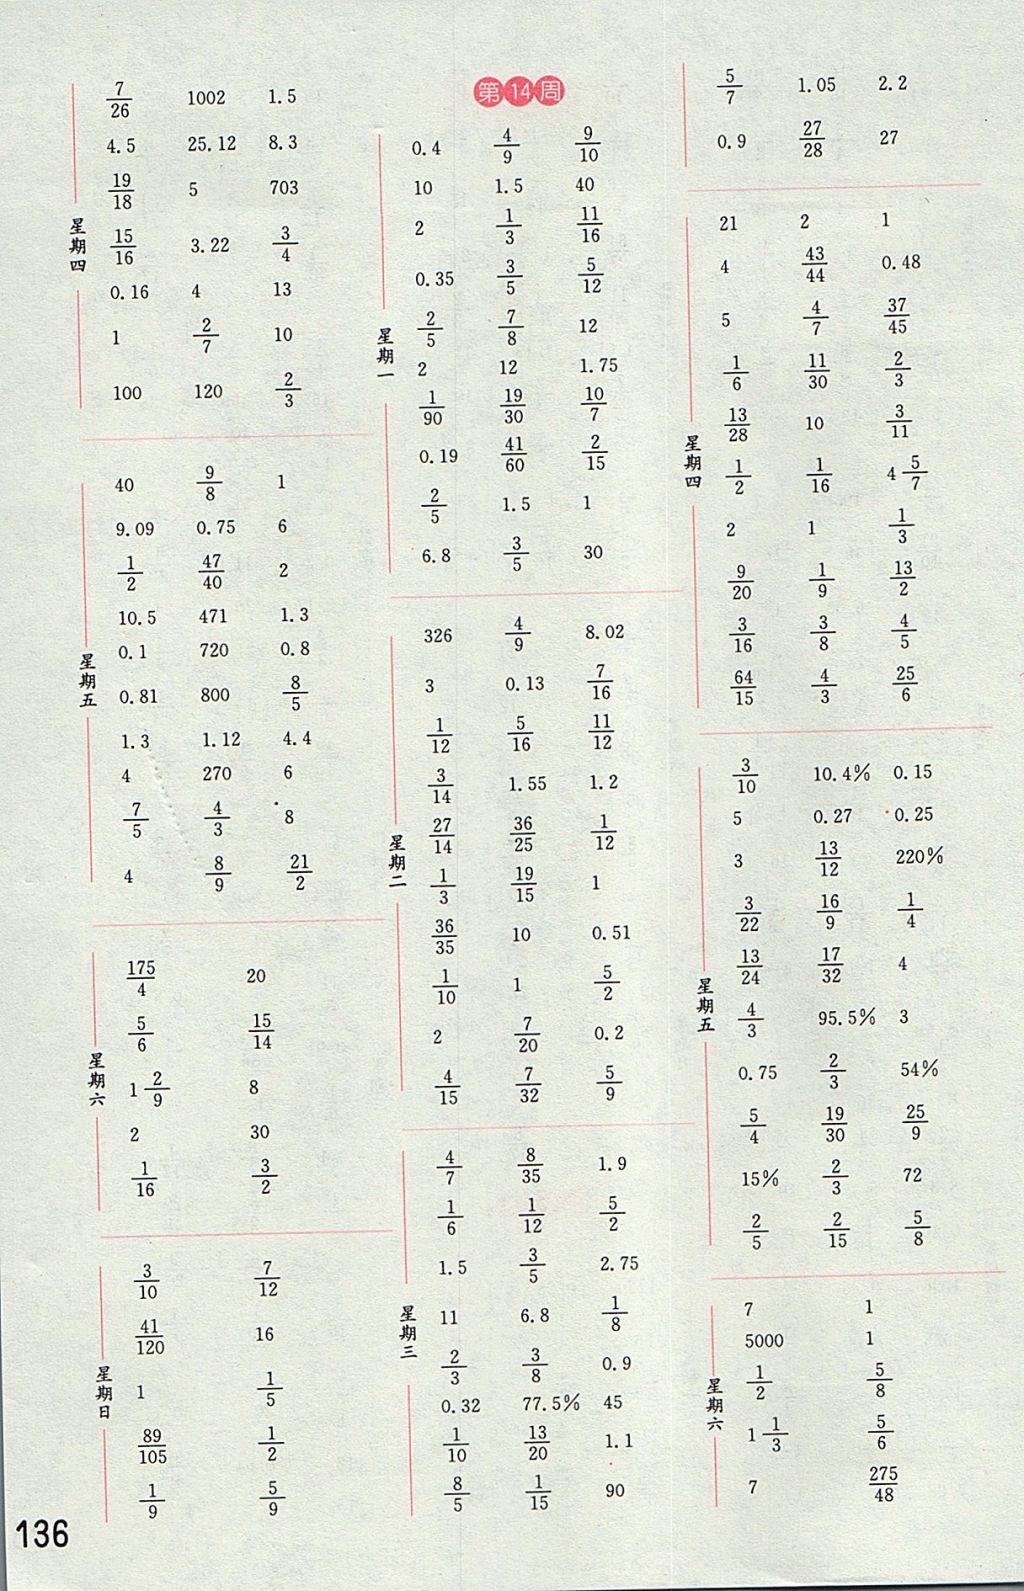 7/26 1002 1.5
4.5 25.12 8.3
19/18 5 703
星期四
15/16 3.22 3/4
0.16 4 13
1 2/7 10
100 120 2/3
40 9/8 1
9.09 0.75 6
1/2 47/40 2
10.5 471 1.3
0.1 720 0.8
星期五
0.81 800 8/5
1.3 1.12 4.4
4 270 6
7/5 4/3 8
4 8/9 21/2
175/4 20
5/6 15/14
星期六
1 2/9 8
2 30
1/16 3/2
3/10 7/12
41/120 16
星期日
1 1/5
89/105 1/2
1/9 5/9
136
第14周
0.4 4/9 9/10
10 1.5 40
2 1/3 11/16
0.35 3/5 5/12
星期一
2/5 7/8 12
2 12 1.75
1/90 19/30 10/7
0.19 41/60 2/15
2/5 1.5 1
6.8 3/5 30
326 4/9 8.02
3 0.13 7/16
1/12 5/16 11/12
3/14 1.55 1.2
27/14 36/25 1/12
星期二
1/3 19/15 1
36/35 10 0.51
1/10 1 5/2
2 7/20 0.2
4/15 7/32 5/9
4/7 8/35 1.9
1/6 1/12 5/2
1.5 3/5 2.75
星期三
11 6.8 1/8
2/3 3/8 0.9
0.32 77.5% 45
1/10 13/20 1.1
8/5 1/15 90
5/7 1.05 2.2
0.9 27/28 27
21 2 1
4 43/44 0.48
5 4/7 37/45
1/6 11/30 2/3
13/28 10 3/11
星期四
1/2 1/16 4 5/7
2 1 1/3
9/20 1/9 13/2
3/16 3/8 4/5
64/15 4/3 25/6
3/10 10.4% 0.15
5 0.27 0.25
3 13/12 220%
3/22 16/9 1/4
13/24 17/32 4
星期五
4/3 95.5% 3
0.75 2/3 54%
5/4 19/30 25/9
15% 2/3 72
2/5 2/15 5/8
7 1
5000 1
1/2 5/8
星期六
1 1/3 5/6
7 275/48